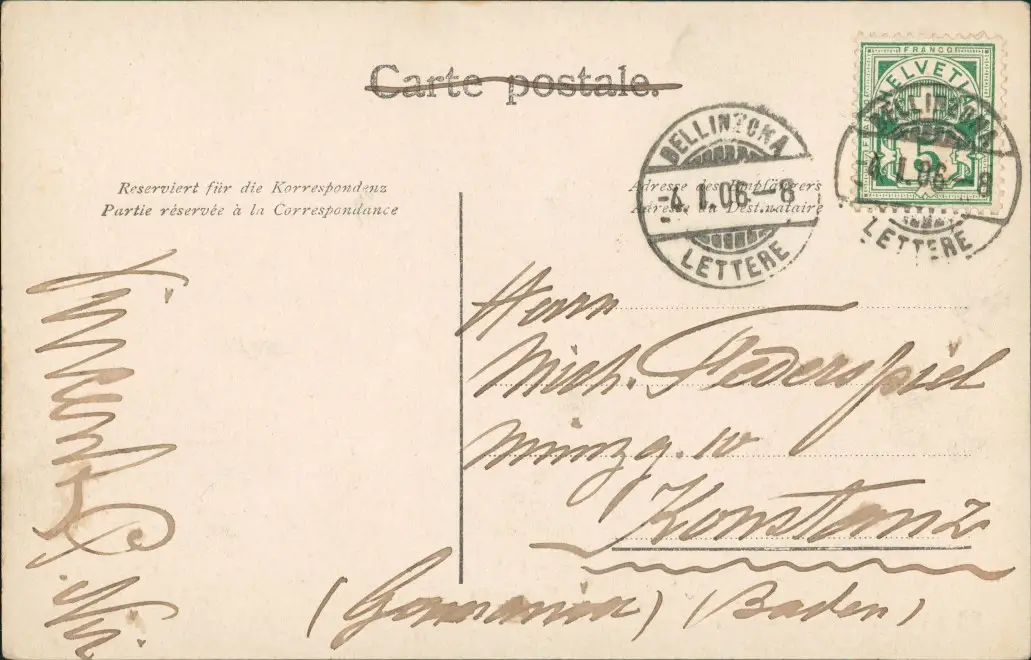 Carte postale.
FRANCO
HELVETIA
5
BELLINZONA
-4.I.06-8
LETTERE
BELLINZONA
-4.I.06-8
LETTERE
Reserviert für die Korrespondenz
Partie réservée à la Correspondance
Adresse des Empfängers
Adresse du Destinataire
Herrn
Mich. Federspiel
Münzg. 10
Konstanz
(Germania) (Baden)